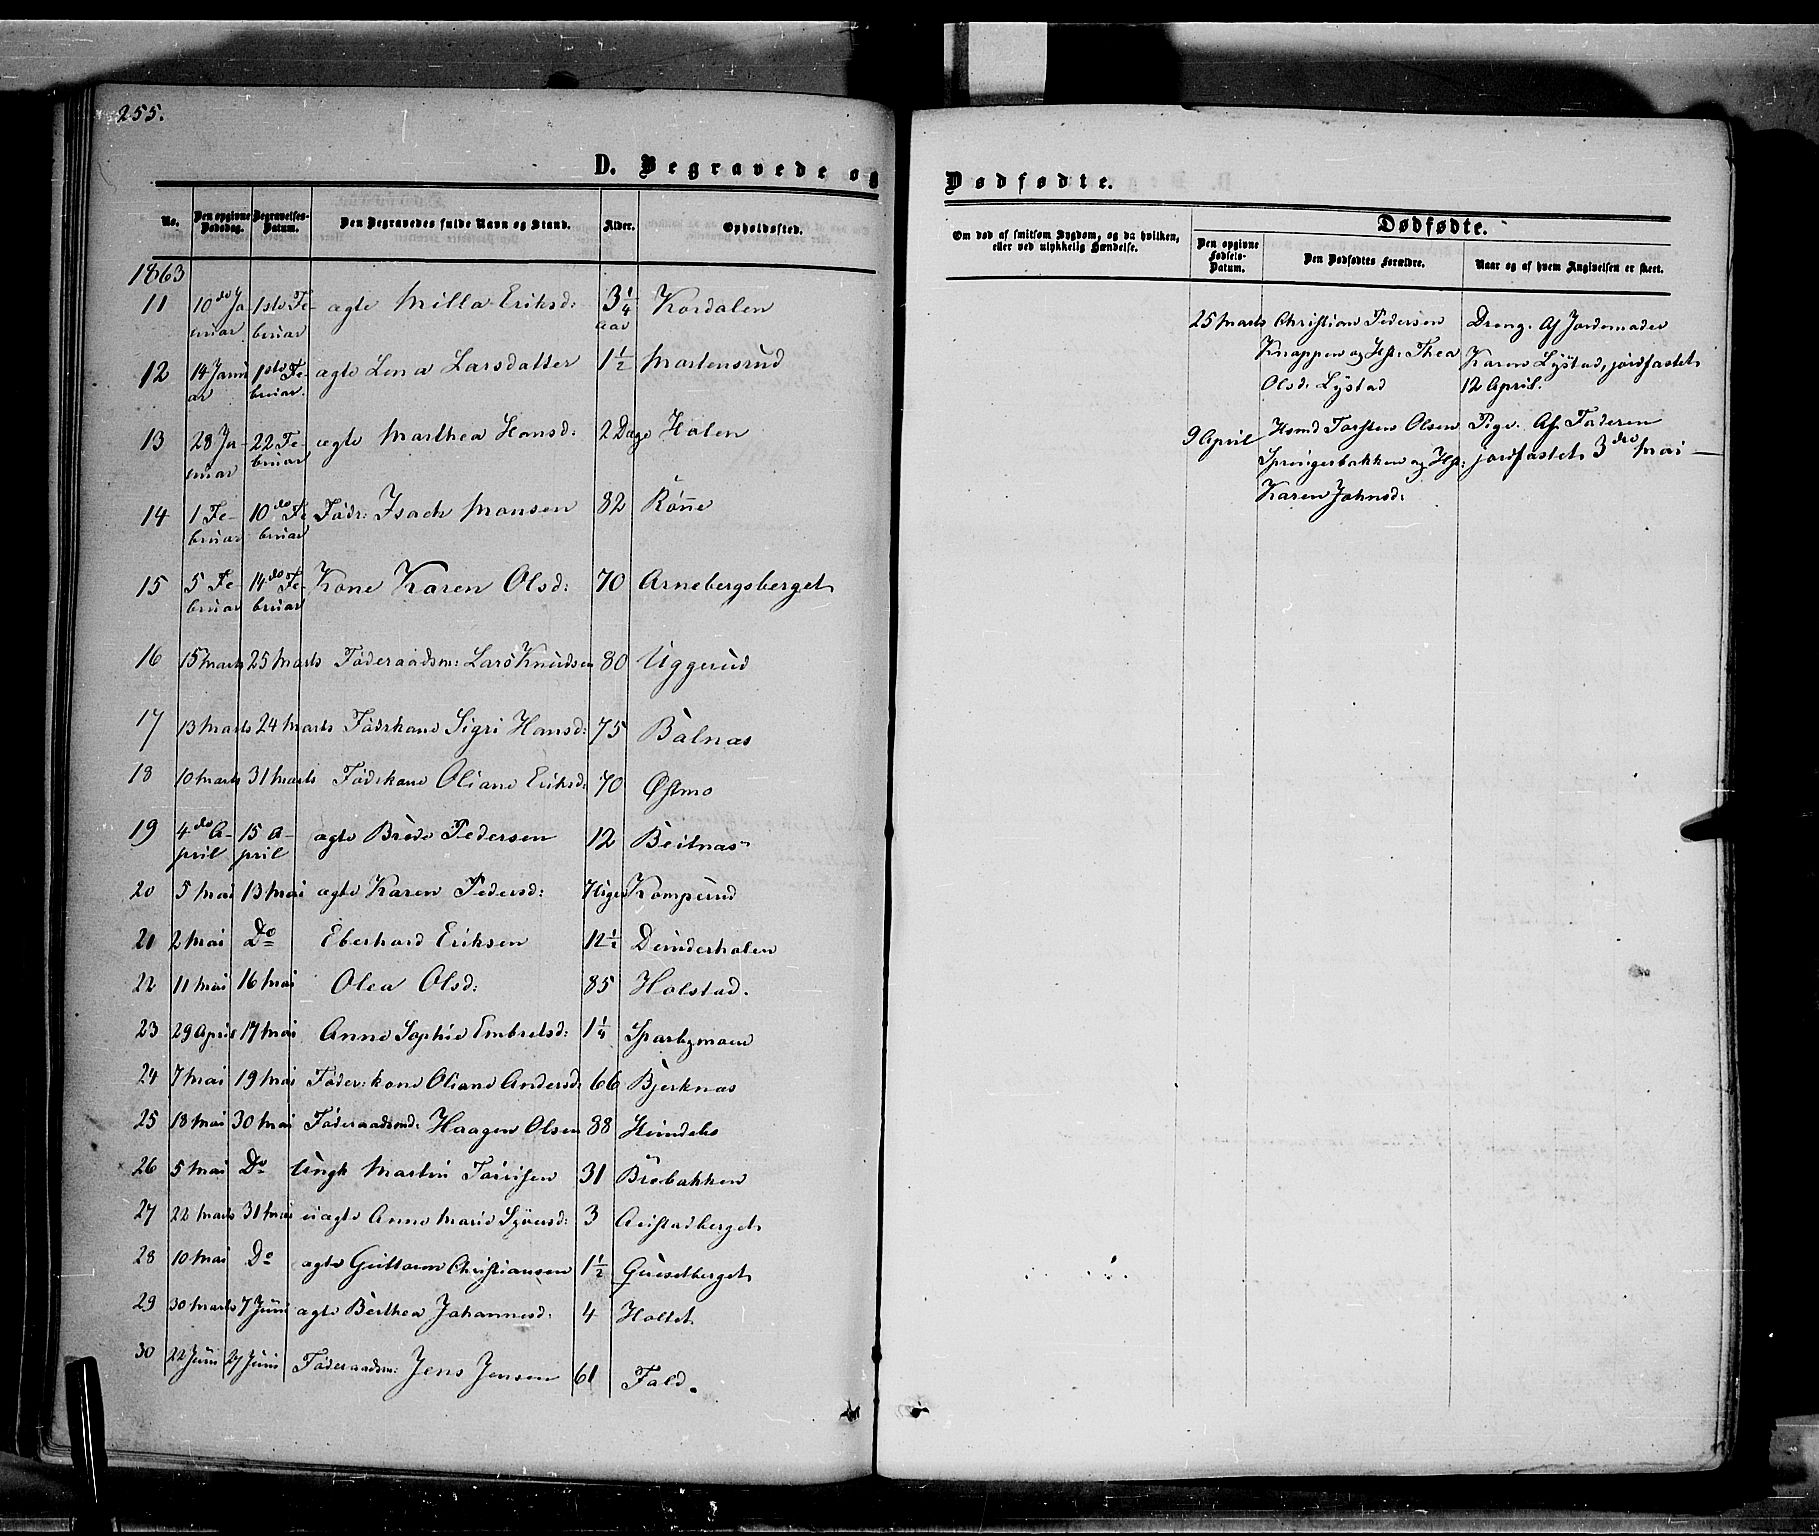 255.
D. Begravede og
No. Den opgivne Dødsdag. Begravelses-Datum. Den Begravedes fulde Navn og Stand. Alder. Opholdssted.
1863
11 10de Ja- 1ste Fe- ægte Milla Eriksd: 3 1/4 Kordalen
nuar bruar aar
12 14 Janu- 1ste Fe- ægte Lena Larsdatter 1 1/2 Martensrud
ar bruar.
13 28 Ja- 22 Fe- ægte Marthea Hansd: 2 Dage Holen
nuar bruar
14 1 Fe- 10de Fe- Födr: Isach Monsen 82 Rönne
bruar bruar
15 5 Fe- 14de Fe- Kone Karen Olsd: 70 Arnebergsberget
bruar bruar
16 15 Marts 25 Marts Föderaadsm: Lars Knudsen 80 Uggerud
17 13 Marts 24 Marts Födrkone Sigri Hansd: 75 Balnæs
18 10 Marts 31 Marts Födrkone Oliane Eriksd: 70 Østmo
19 4de A- 15 A- ægte Brede Pedersen 12 Beitnæs
pril pril
20 5 Mai 13 Mai ægte Karen Pedersd: 7 Uger Komperud
21 2 Mai Do Eberhard Eriksen 12 1/2 Dunderholen
22 11 Mai 16 Mai Olea Olsd: 85 Holstad.
23 29 April 17 Mai Anne Sophie Embretsd: 1 1/4 Sparbymoen
24 7 Mai 19 Mai Föder:kone Oliane Andersd 66 Bjerknæs
25 18 Mai 30 Mai Föderaadsmd: Haagen Olsen 88 Hundebo
26 5 Mai Do Ungk Martin 31 Brobakken
27 22 Marts 31 Mai uægte Anne Marie Syversd: 3
28 10 Mai Do ægte Guttorm Christiansen 1 1/2
29 30 Marts 7 Juni ægte Berthea Johannesd: 4 Holtet
30 22 Juni 27 Juni Föderaadsm: Jens Jensen 61 Fald.
Dødfødte.
Dødfødte.
Om død af smitsom Sygdom, og da hvilken, eller ved ulykkelig Hændelse. Den opgivne Fødsels-Datum. Den Dødfødtes Forældre. Naar og af hvem Angivelsen er skeet.
25 Marts Christian Pedersen Dreng. Af Jordemoder
Knappen og Hst: Thea Karen Lystad, jordfæstet
Olsd: Lystad 12 April.
9 April Hsmd Torsten Olsen Pige. Af Faderen
Springerbakken og Hst: jordfæstet 3die Mai —
Karen Johnsd: